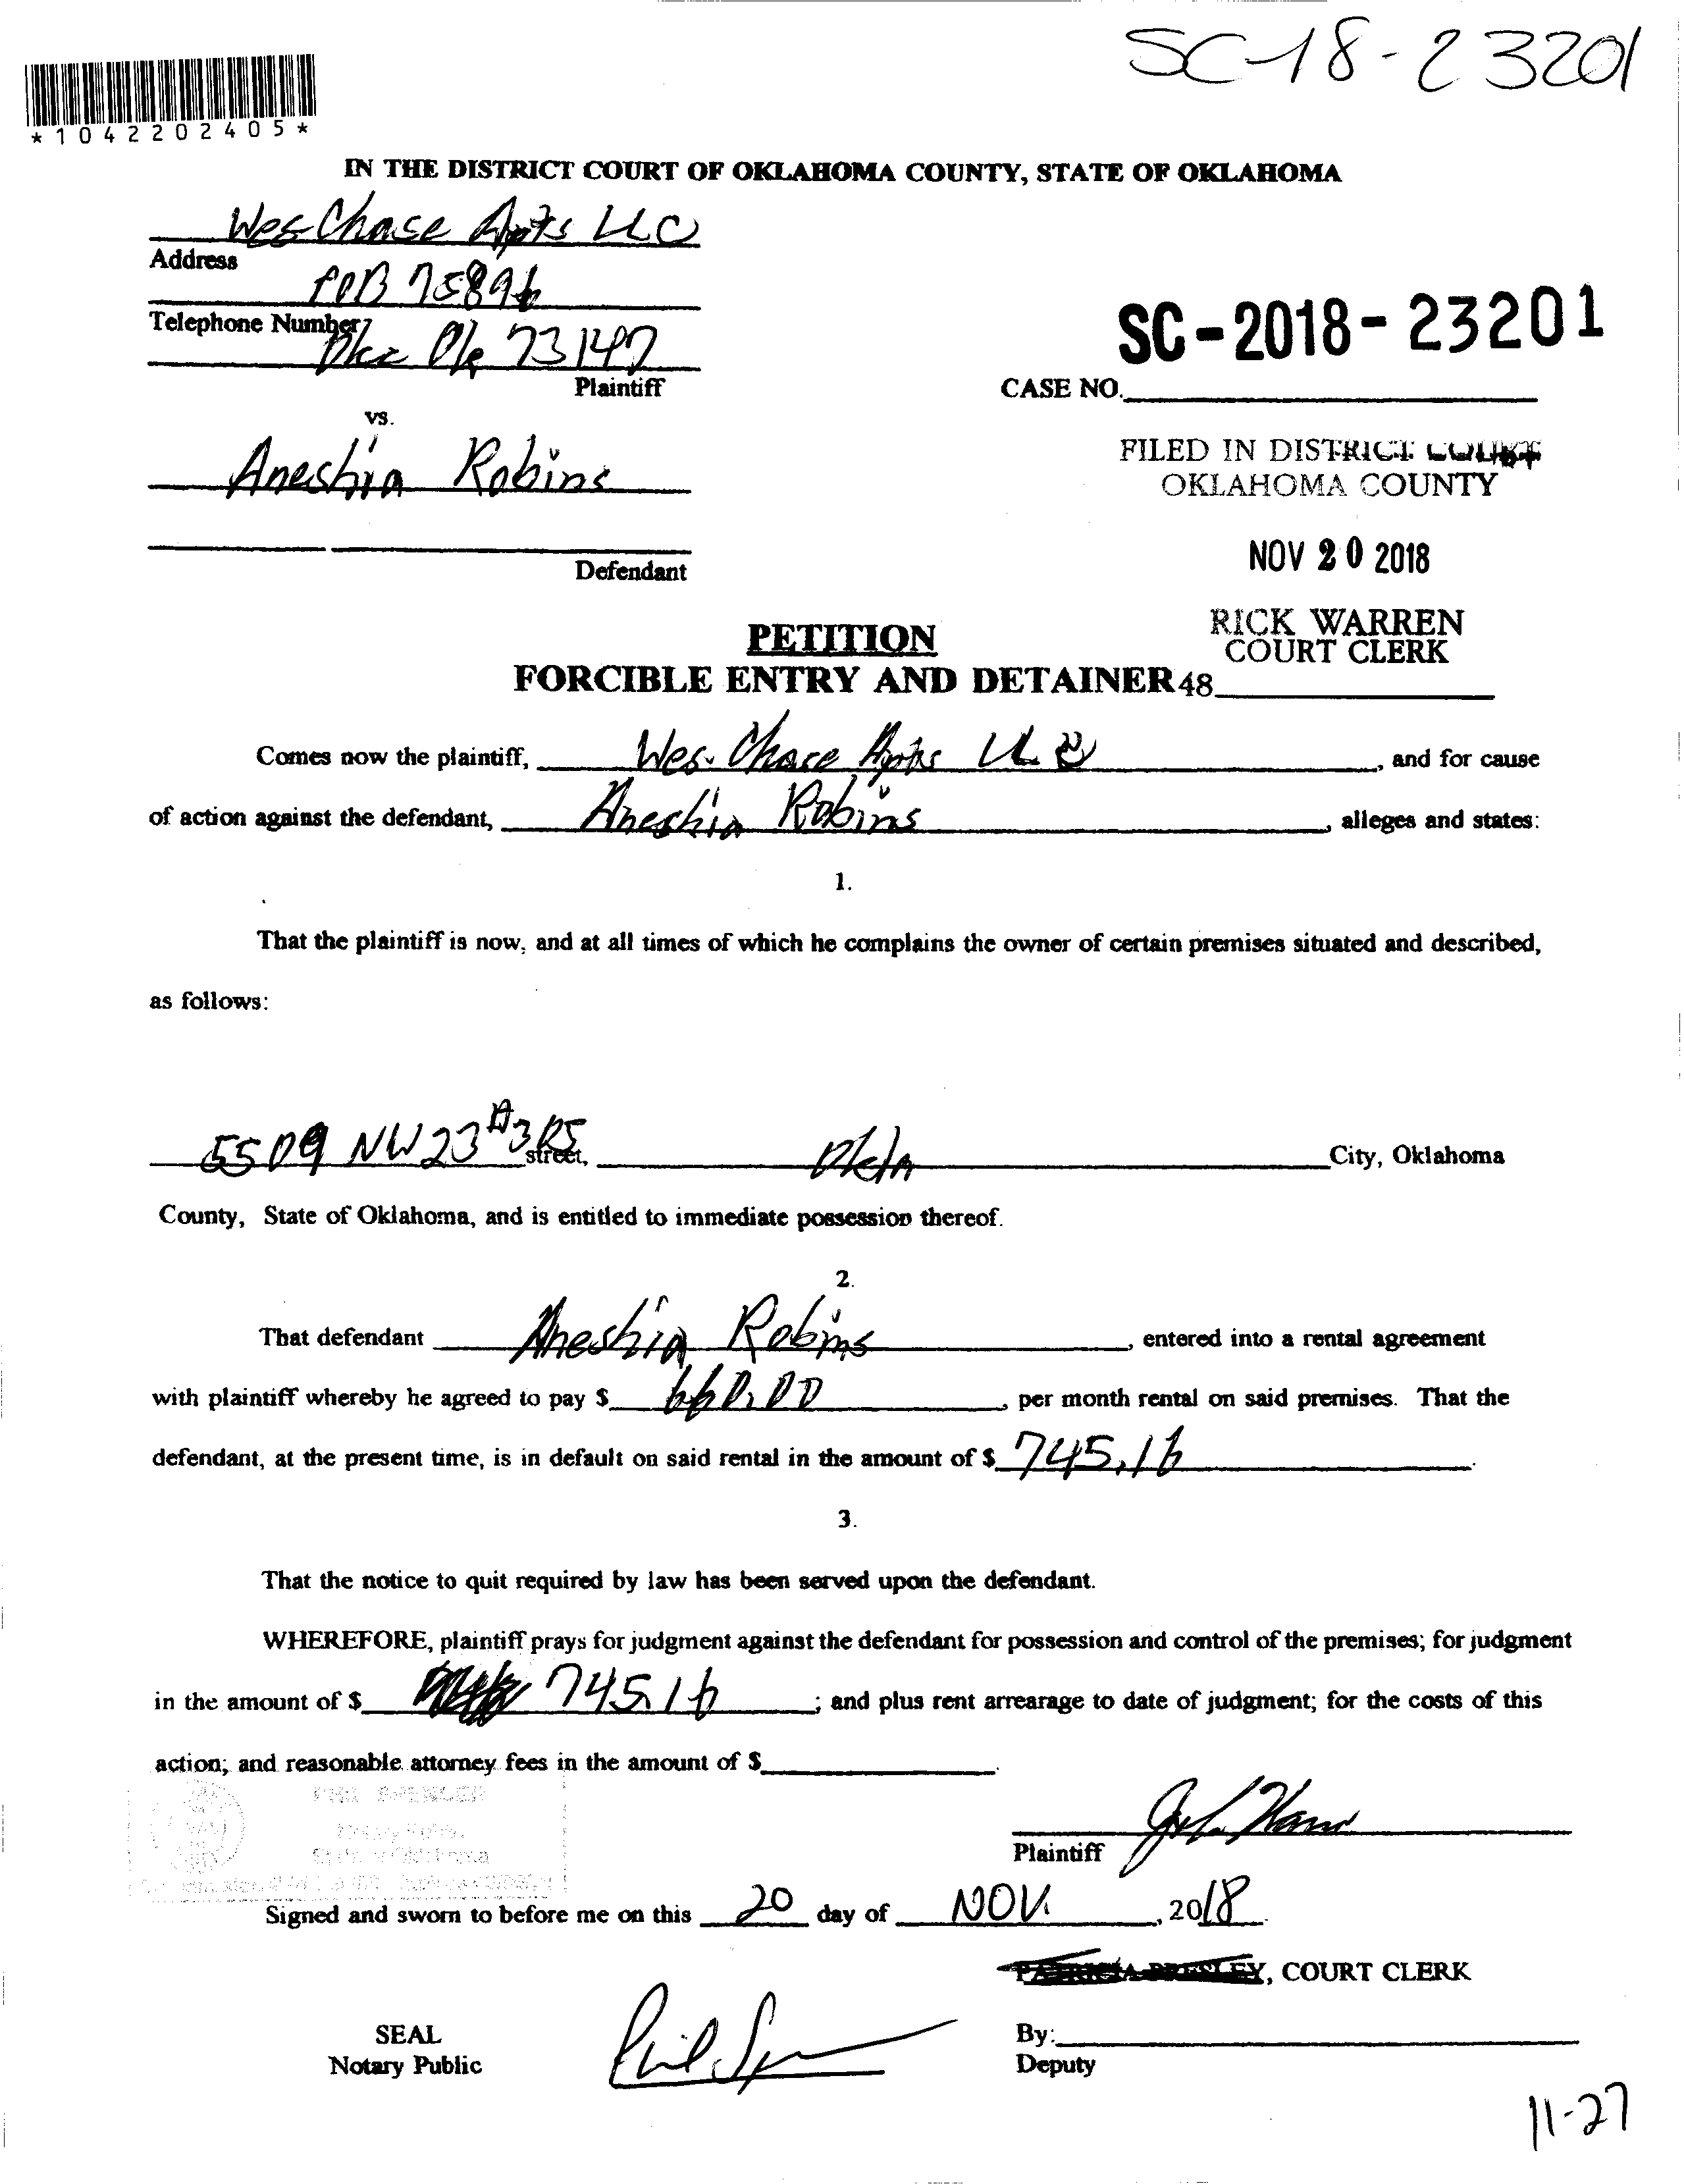 SC-18-23201
*1042202405*
IN THE DISTRICT COURT OF OKLAHOMA COUNTY, STATE OF OKLAHOMA
Wes Chase Apts LLC
Address
POB 75896
Telephone Number
Okc Ok 73147
Plaintiff
SC-2018-23201
CASE NO.
vs.
Aneshia Robins
FILED IN DISTRICT COURT
OKLAHOMA COUNTY
NOV 20 2018
Defendant
RICK WARREN
COURT CLERK
PETITION
FORCIBLE ENTRY AND DETAINER 48
Comes now the plaintiff, Wes Chase Apts LLC, and for cause
of action against the defendant, Aneshia Robins, alleges and states:
1.
That the plaintiff is now, and at all times of which he complains the owner of certain premises situated and described,
as follows:
5509 NW 23 #3R5 street, Okla City, Oklahoma
County, State of Oklahoma, and is entitled to immediate possession thereof.
2.
That defendant Aneshia Robins, entered into a rental agreement
with plaintiff whereby he agreed to pay $ 660.00, per month rental on said premises. That the
defendant, at the present time, is in default on said rental in the amount of $ 745.16.
3.
That the notice to quit required by law has been served upon the defendant.
WHEREFORE, plaintiff prays for judgment against the defendant for possession and control of the premises; for judgment
in the amount of $ 745.16; and plus rent arrearage to date of judgment; for the costs of this
action; and reasonable attorney fees in the amount of $.
PHIL SPENCER
Notary Public
State of Oklahoma
Plaintiff
Signed and sworn to before me on this 20 day of NOV., 2018.
PATRICIA PRESLEY, COURT CLERK
SEAL
Notary Public
By:
Deputy
11-27